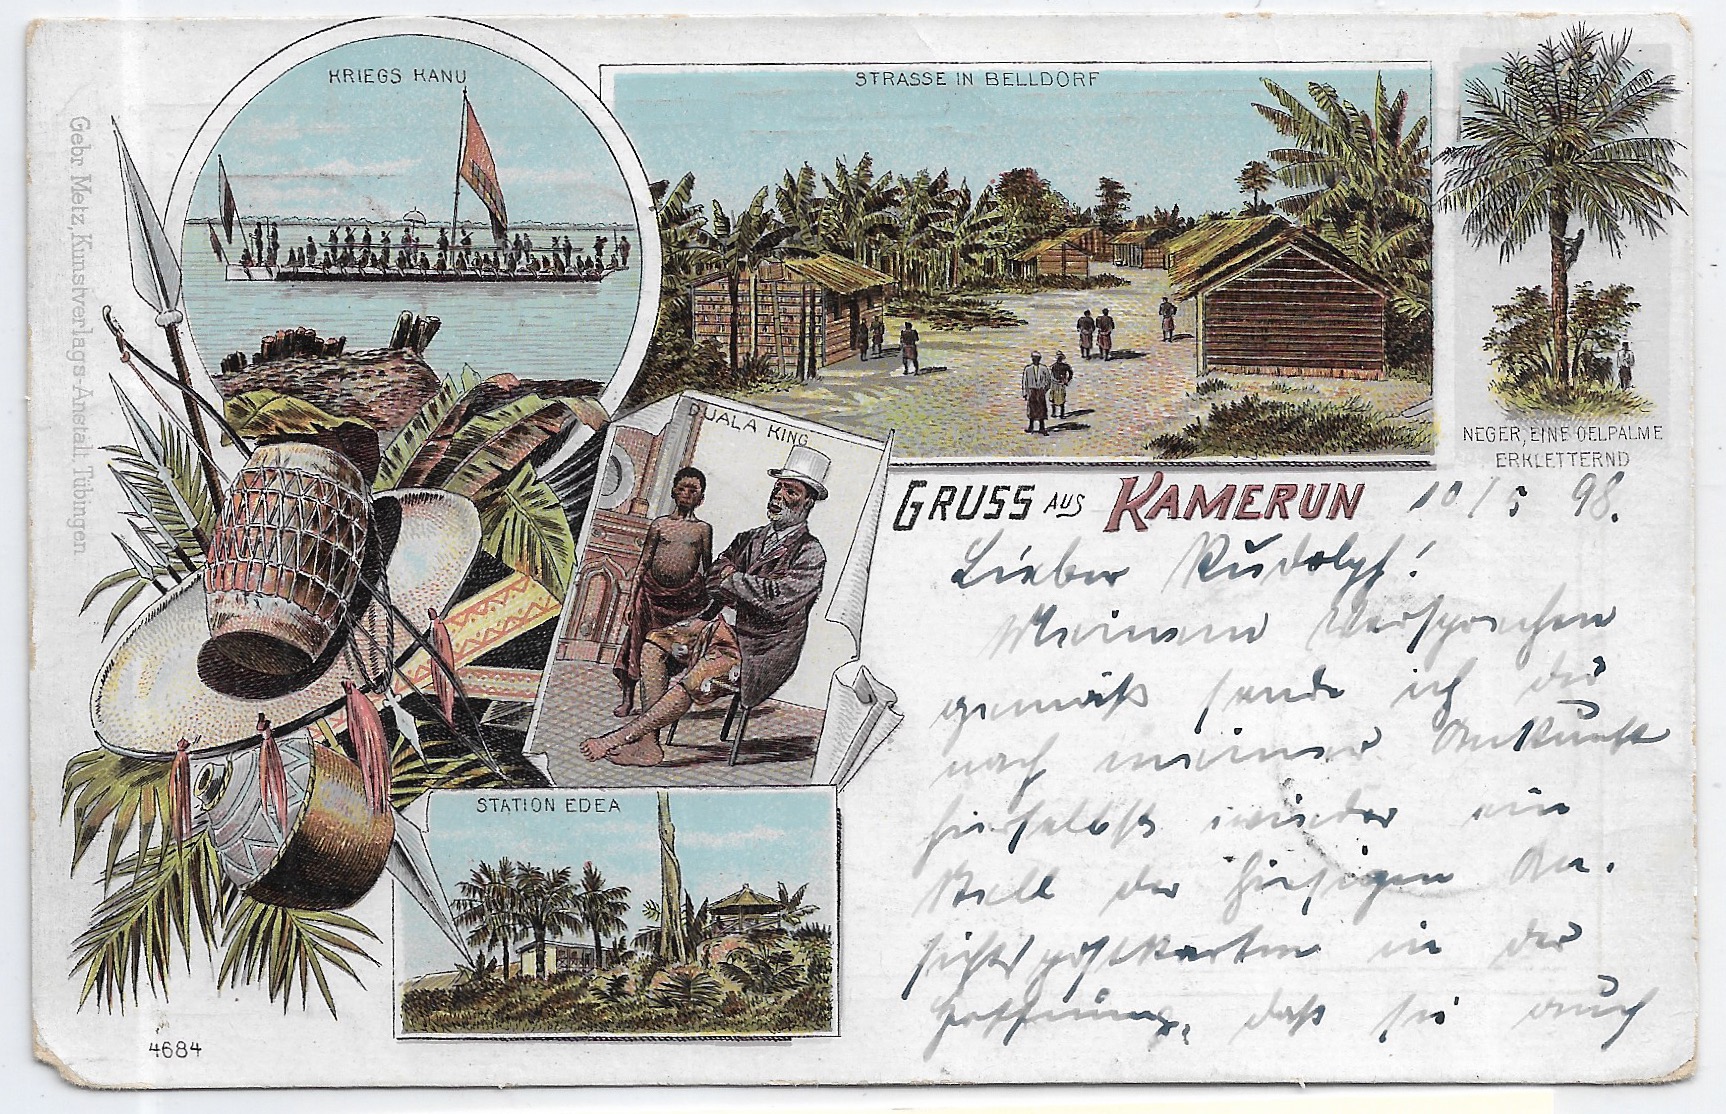 KRIEGS KANU
STRASSE IN BELLDORF
NEGER, EINE OELPALME
ERKLETTERND
DUALA KING
STATION EDEA
Gebr. Metz, Kunstverlags-Anstalt, Tübingen
4684
GRUSS AUS KAMERUN 10/5 98.
Lieber Rudolph!
Meinem Versprechen
gemäß sende ich dir
nach meiner Ankunft
hierselbst wieder ein
der hiesigen An-
sichtspostkarten in der
Hoffnung, daß sie auch